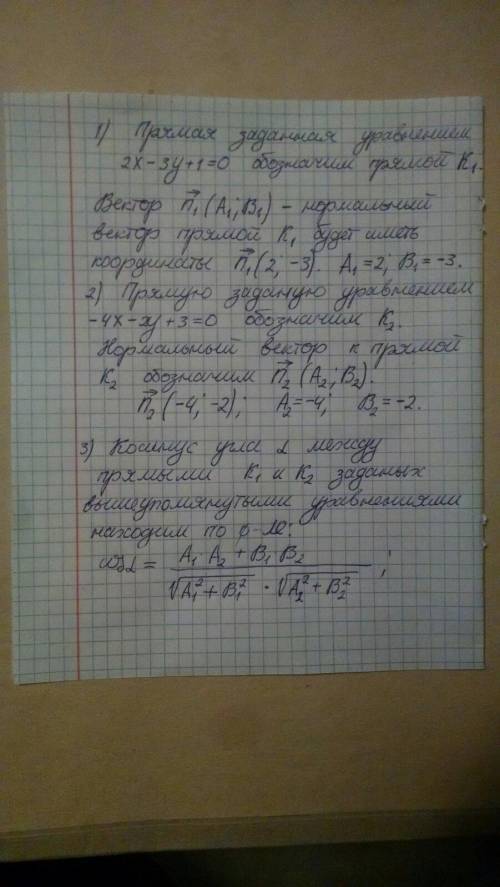 1) Прямая заданная уравнением
2x-3y+1=0 обозначим прямой K₁.
Вектор n⃗₁(A₁; B₁) - нормальный
вектор прямой K₁ будет иметь
координаты n⃗₁(2; -3). A₁=2; B₁=-3.
2) Прямую заданую уравнением
-4x-2y+3=0 обозначим K₂.
Нормальный вектор к прямой
K₂ обозначим n⃗₂(A₂; B₂).
n⃗₂(-4; -2); A₂=-4; B₂=-2.
3) Косинус угла α между
прямыми K₁ и K₂ заданых
вышеупомянутыми уравнениями
находим по ф-ле:
cosα = (A₁·A₂ + B₁·B₂) / (√(A₁²+B₁²) · √(A₂²+B₂²));